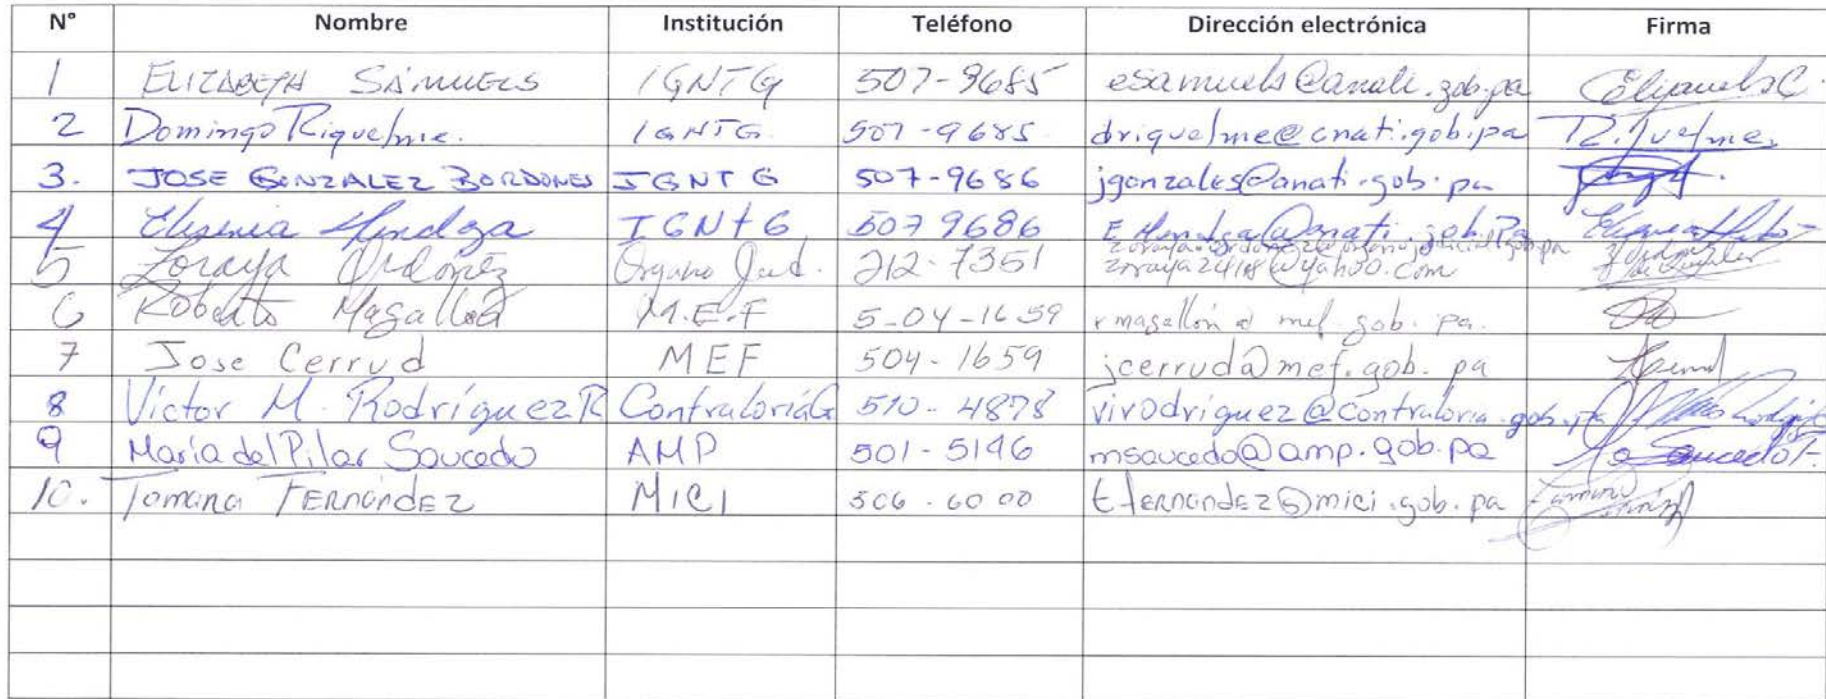 N° Nombre Institución Teléfono Dirección electrónica Firma
1 ELIZABETH SAMUELS IGNTG 507-9685 esamuels@anati.gob.pa
2 Domingo Riquelme. IGNTG. 507-9685 driquelme@anati.gob.pa Riquelme
3. JOSE GONZALEZ BORDONES IGNTG 507-9686 jgonzales@anati.gob.pa
4 Mendoza IGNTG 507 9686 E.Mendoza@anati.gob.Pa
5 Zoraya Ordoñez Organo Jud. 212-7351 zoraya.ordonez@organojudicial.gob.pa
zoraya2418@yahoo.com
6 Roberto Magallón M.E.F 5-04-1659 rmagallón@mef.gob.pa.
7 Jose Cerrud MEF 504-1659 jcerrud@mef.gob.pa
8 Víctor M. Rodríguez R ContraloríaG 510-4878 virodriguez@contraloria.gob.pa
9 María del Pilar Saucedo AMP 501-5196 msaucedo@amp.gob.pa Saucedo F.
10. Tamara FERNÁNDEZ MICI 506-6000 tfernandez@mici.gob.pa